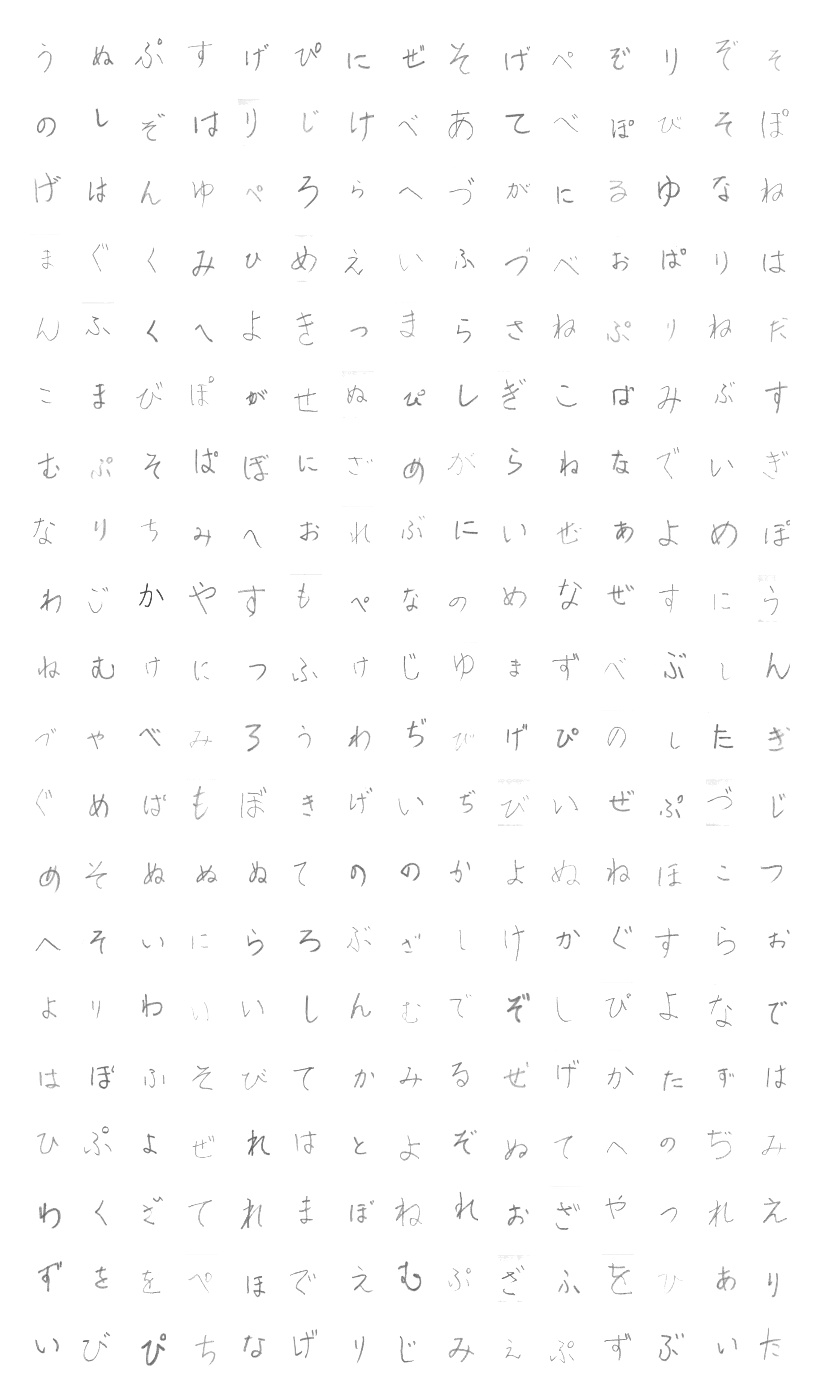 うぬぷすげぴにぜそげぺぞりぞそ
のしぞはりじけべあてべぽびそぽ
げはんゆぺろらへづがにるゆなね
まぐくみひめえいふづべおぱりは
んふくへよきっまらさねぷりねだ
こまびぽがせぬぴしぎこばみぶす
むぷそぱぼにざめがらねなでいぎ
なりちみへおれぶにいぜあよめぽ
わごかやすもぺなのめなぜすにう
ねむけにつふけじゆまずべぶしん
づゃべみろうわぢびげぴのしたぎ
ぐめぱもぼきげいぢびいぜぷづじ
めそぬぬぬてののかよぬねほこつ
へそいにらろぶざしけかぐすらお
よりわいいしんむでぞしぴよなで
はぼふそびてかみるぜげかたずは
ひぷよぜれはとよぞぬてへのぢみ
わくざてれまぼねれおざやつれえ
ずををぺほでえむぷざふをひあり
いびぴちなげりじみえぷずぶいた